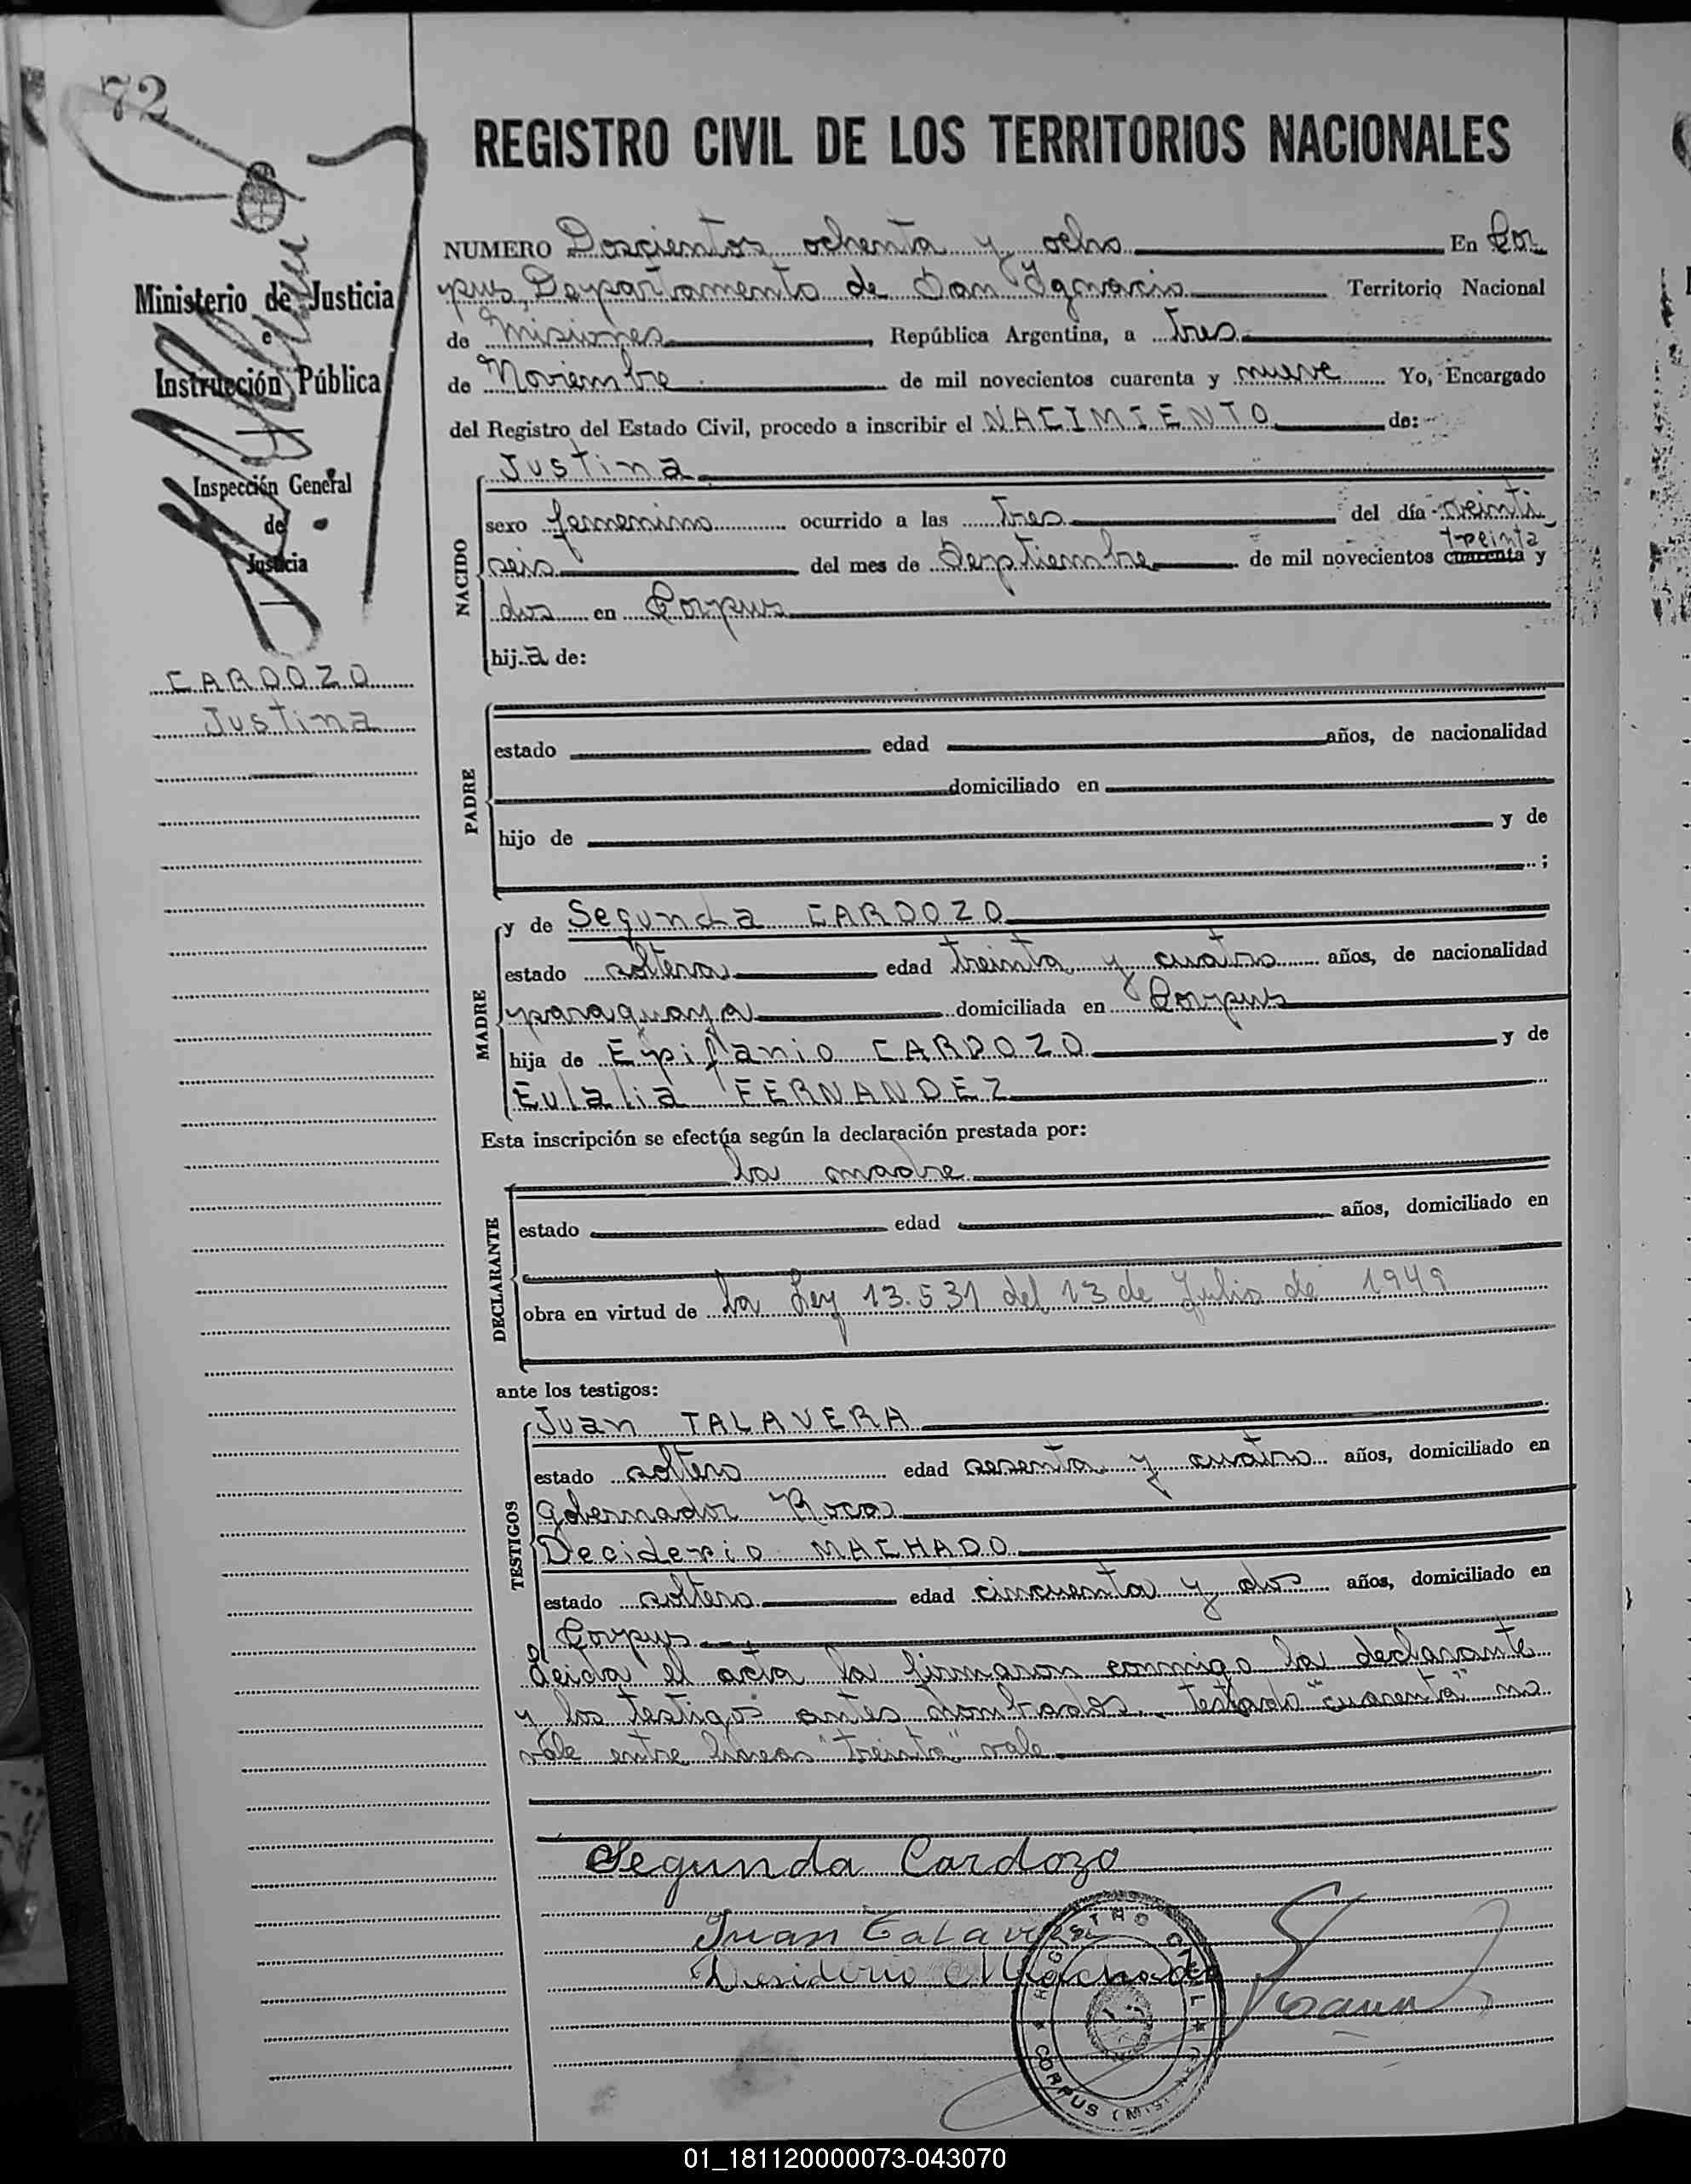 72
REGISTRO CIVIL DE LOS TERRITORIOS NACIONALES
Ministerio de Justicia
e
Instrucción Pública
Inspección General
de
Justicia
CARDOZO
Justina
NUMERO Doscientos ochenta y ocho En Cor
pus, Departamento de San Ignacio Territorio Nacional
de Misiones, República Argentina, a Tres
de Noviembre de mil novecientos cuarenta y nueve Yo, Encargado
del Registro del Estado Civil, procedo a inscribir el NACIMIENTO de:
NACIDO
Justina
sexo femenino ocurrido a las Tres del día veinti
treinta
seis del mes de Septiembre de mil novecientos cuarenta y
dos en Corpus
hija de:
PADRE
estado edad años, de nacionalidad
domiciliado en
hijo de y de
;
MADRE
y de Segunda CARDOZO
estado soltera edad treinta y cuatro años, de nacionalidad
paraguaya domiciliada en Corpus
hija de Epifanio CARDOZO y de
Eulalia FERNANDEZ
Esta inscripción se efectúa según la declaración prestada por:
DECLARANTE
la madre
estado edad años, domiciliado en
obra en virtud de la Ley 13.531 del 13 de Julio de 1949
ante los testigos:
TESTIGOS
Juan TALAVERA
estado soltero edad sesenta y cuatro años, domiciliado en
Gobernador Roca
Deciderio MACHADO
estado soltero edad cincuenta y dos años, domiciliado en
Corpus
Leida el acta la firmaron conmigo la declarante
y los testigos antes nombrados. Testado "cuarenta" no
vale entre líneas "treinta" vale
Segunda Cardozo
Juan Talavera
Desiderio Machado
REGISTRO CIVIL
CORPUS (MIS
01_181120000073-043070